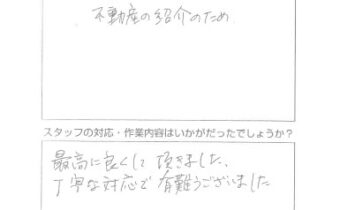 不動産の紹介のため
スタッフの対応・作業内容はいかがだったでしょうか？
最高に良くして頂きました、
丁寧な対応で有難うございました